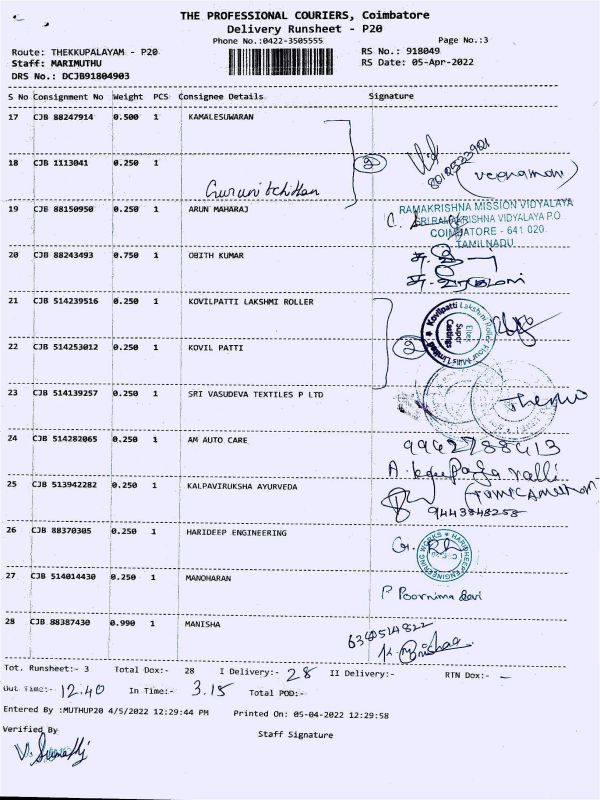 THE PROFESSIONAL COURIERS, Coimbatore
Delivery Runsheet - P20
Phone No.:0422-3505555 Page No.:3
Route: THEKKUPALAYAM - P20 RS No.: 918049
Staff: MARIMUTHU RS Date: 05-Apr-2022
DRS No.: DCJB91804903
S No Consignment No Weight PCS Consignee Details Signature
17 CJB 88247914 0.500 1 KAMALESUWARAN
2
18 CJB 1113041 0.250 1
19 CJB 88150950 0.250 1 ARUN MAHARAJ
RAMAKRISHNA MISSION VIDYALAYA
SRI RAMAKRISHNA VIDYALAYA P.O
COIMBATORE - 641 020
TAMILNADU
20 CJB 88243493 0.750 1 OBITH KUMAR
21 CJB 514239516 0.250 1 KOVILPATTI LAKSHMI ROLLER
Kovilpatti Lakshmi Roller Flour Mills Limited
Eltex
Super
Castings
22 CJB 514253012 0.250 1 KOVIL PATTI
2
23 CJB 514139257 0.250 1 SRI VASUDEVA TEXTILES P LTD
24 CJB 514282065 0.250 1 AM AUTO CARE
9942788413
25 CJB 513942282 0.250 1 KALPAVIRUKSHA AYURVEDA
9443848258
26 CJB 88370305 0.250 1 HARIDEEP ENGINEERING
HARIDHEEP ENGINEERING WORKS
27 CJB 514014430 0.250 1 MANOHARAN
P Poornima devi
28 CJB 88387430 0.990 1 MANISHA
Tot. Runsheet:- 3 Total Dox:- 28 I Delivery:- 28 II Delivery:- RTN Dox:- -
Out Time:- 12.40 In Time:- 3.15 Total POD:-
Entered By :MUTHUP20 4/5/2022 12:29:44 PM Printed On: 05-04-2022 12:29:58
Verified By
Staff Signature